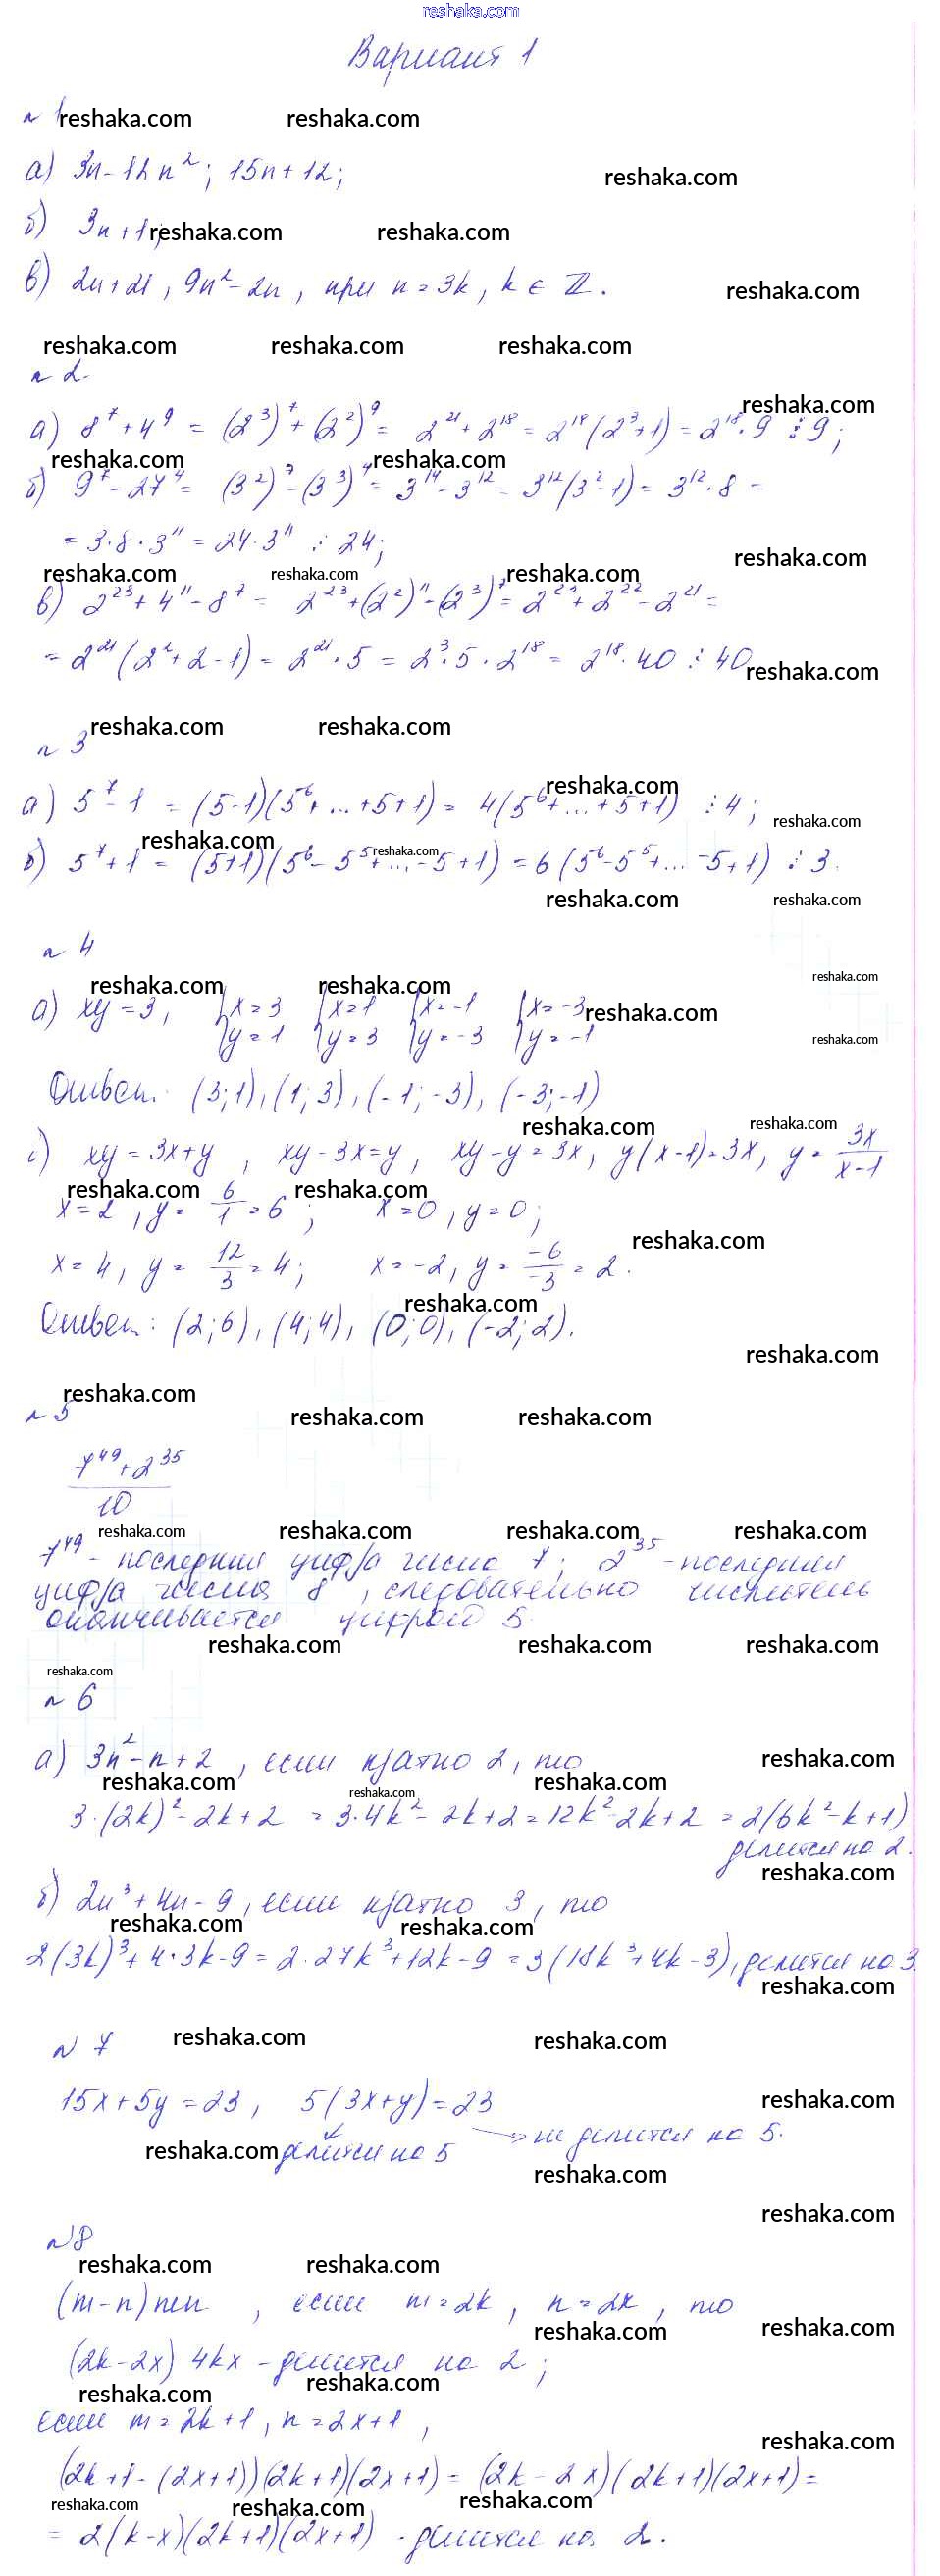 reshaka.com
Вариант 1
№ 1 reshaka.com reshaka.com
а) 3n - 12n²; 15n + 12; reshaka.com
б) 3n + 1; reshaka.com reshaka.com
в) 2n + 21, 9n² - 2n, при n = 3k, k ∈ Z. reshaka.com
reshaka.com reshaka.com reshaka.com
№ 2
reshaka.com
а) 8⁷ + 4⁹ = (2³)⁷ + (2²)⁹ = 2²¹ + 2¹⁸ = 2¹⁸(2³ + 1) = 2¹⁸ · 9 ⋮ 9;
reshaka.com reshaka.com
б) 9⁷ - 27⁴ = (3²)⁷ - (3³)⁴ = 3¹⁴ - 3¹² = 3¹²(3² - 1) = 3¹² · 8 =
= 3 · 8 · 3¹¹ = 24 · 3¹¹ ⋮ 24; reshaka.com
reshaka.com reshaka.com reshaka.com
в) 2²³ + 4¹¹ - 8⁷ = 2²³ + (2²)¹¹ - (2³)⁷ = 2²³ + 2²² - 2²¹ =
= 2²¹(2² + 2 - 1) = 2²¹ · 5 = 2³ · 5 · 2¹⁸ = 2¹⁸ · 40 ⋮ 40 reshaka.com
reshaka.com reshaka.com
№ 3
reshaka.com
а) 5⁷ - 1 = (5 - 1)(5⁶ + ... + 5 + 1) = 4(5⁶ + ... + 5 + 1) ⋮ 4; reshaka.com
reshaka.com reshaka.com
б) 5⁷ + 1 = (5 + 1)(5⁶ - 5⁵ + ... - 5 + 1) = 6(5⁶ - 5⁵ + ... - 5 + 1) ⋮ 3.
reshaka.com reshaka.com
№ 4
reshaka.com
reshaka.com reshaka.com
а) xy = 3, {x = 3 {x = 1 {x = -1 {x = -3 reshaka.com
y = 1 y = 3 y = -3 y = -1 reshaka.com
Ответ: (3; 1), (1; 3), (-1; -3), (-3; -1)
reshaka.com reshaka.com
с) xy = 3x + y, xy - 3x = y, xy - y = 3x, y(x - 1) = 3x, y = 3x/(x - 1)
reshaka.com reshaka.com
x = 2, y = 6/1 = 6; x = 0, y = 0;
reshaka.com
x = 4, y = 12/3 = 4; x = -2, y = -6/-3 = 2.
reshaka.com
Ответ: (2; 6), (4; 4), (0; 0), (-2; 2).
reshaka.com
reshaka.com
№ 5 reshaka.com reshaka.com
7⁴⁹ + 2³⁵
10
reshaka.com reshaka.com reshaka.com reshaka.com
7⁴⁹ - последняя цифра числа 7; 2³⁵ - последняя
цифра числа 8, следовательно числитель
оканчивается цифрой 5
reshaka.com reshaka.com reshaka.com
reshaka.com
№ 6
а) 3n² - n + 2, если кратно 2, то reshaka.com
reshaka.com reshaka.com reshaka.com
3 · (2k)² - 2k + 2 = 3 · 4k² - 2k + 2 = 12k² - 2k + 2 = 2(6k² - k + 1)
делится на 2.
reshaka.com
б) 2n³ + 4n - 9, если кратно 3, то
reshaka.com reshaka.com
2(3k)³ + 4 · 3k - 9 = 2 · 27k³ + 12k - 9 = 3(18k³ + 4k - 3), делится на 3.
reshaka.com
№ 7 reshaka.com reshaka.com
15x + 5y = 23, 5(3x + y) = 23 reshaka.com
не делится на 5.
reshaka.com делится на 5
reshaka.com
reshaka.com
№8
reshaka.com reshaka.com
(m - n) mn, если m = 2k, n = 2x, то
reshaka.com reshaka.com
(2k - 2x) 4kx - делится на 2;
reshaka.com reshaka.com
если m = 2k + 1, n = 2x + 1,
reshaka.com
(2k + 1 - (2x + 1))(2k + 1)(2x + 1) = (2k - 2x)(2k + 1)(2x + 1) =
reshaka.com reshaka.com reshaka.com
= 2(k - x)(2k + 1)(2x + 1) - делится на 2.